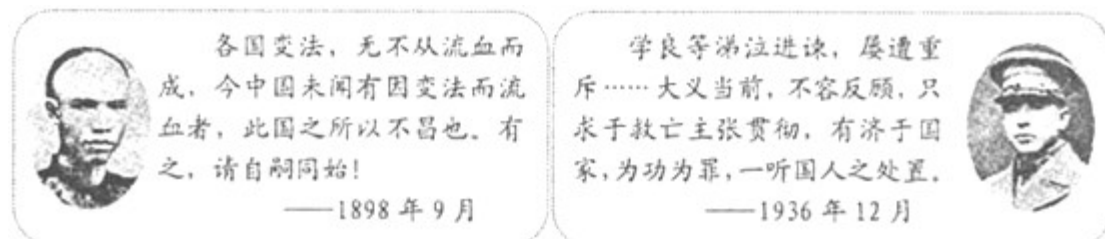 各国变法，无不从流血而
成，今中国未闻有因变法而流
血者，此国之所以不昌也。有
之，请自嗣同始！
——1898年9月
学良等涕泣进谏，屡遭重
斥……大义当前，不容反顾，只
求于救亡主张贯彻，有济于国
家，为功为罪，一听国人之处置。
——1936年12月